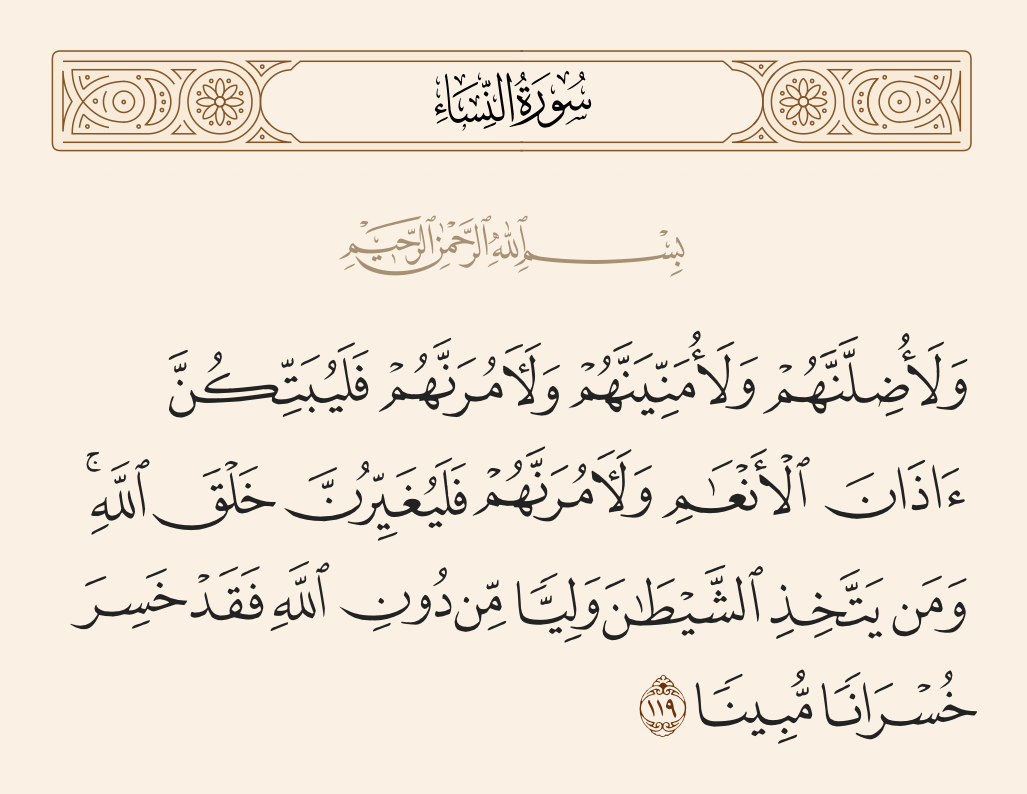 سُورَةُ النِّسَاءِ
بِسْمِ ٱللَّهِ ٱلرَّحْمَٰنِ ٱلرَّحِيمِ
وَلَأُضِلَّنَّهُمْ وَلَأُمَنِّيَنَّهُمْ وَلَـَٔامُرَنَّهُمْ فَلَيُبَتِّكُنَّ
ءَاذَانَ ٱلْأَنْعَٰمِ وَلَـَٔامُرَنَّهُمْ فَلَيُغَيِّرُنَّ خَلْقَ ٱللَّهِ ۚ
وَمَن يَتَّخِذِ ٱلشَّيْطَٰنَ وَلِيًّا مِّن دُونِ ٱللَّهِ فَقَدْ خَسِرَ
خُسْرَانًا مُّبِينًا ١١٩